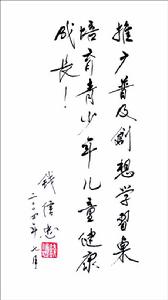 推广普及創想学習桌
培育青少年儿童健康
成長！
钱信忠
二〇〇四年七月